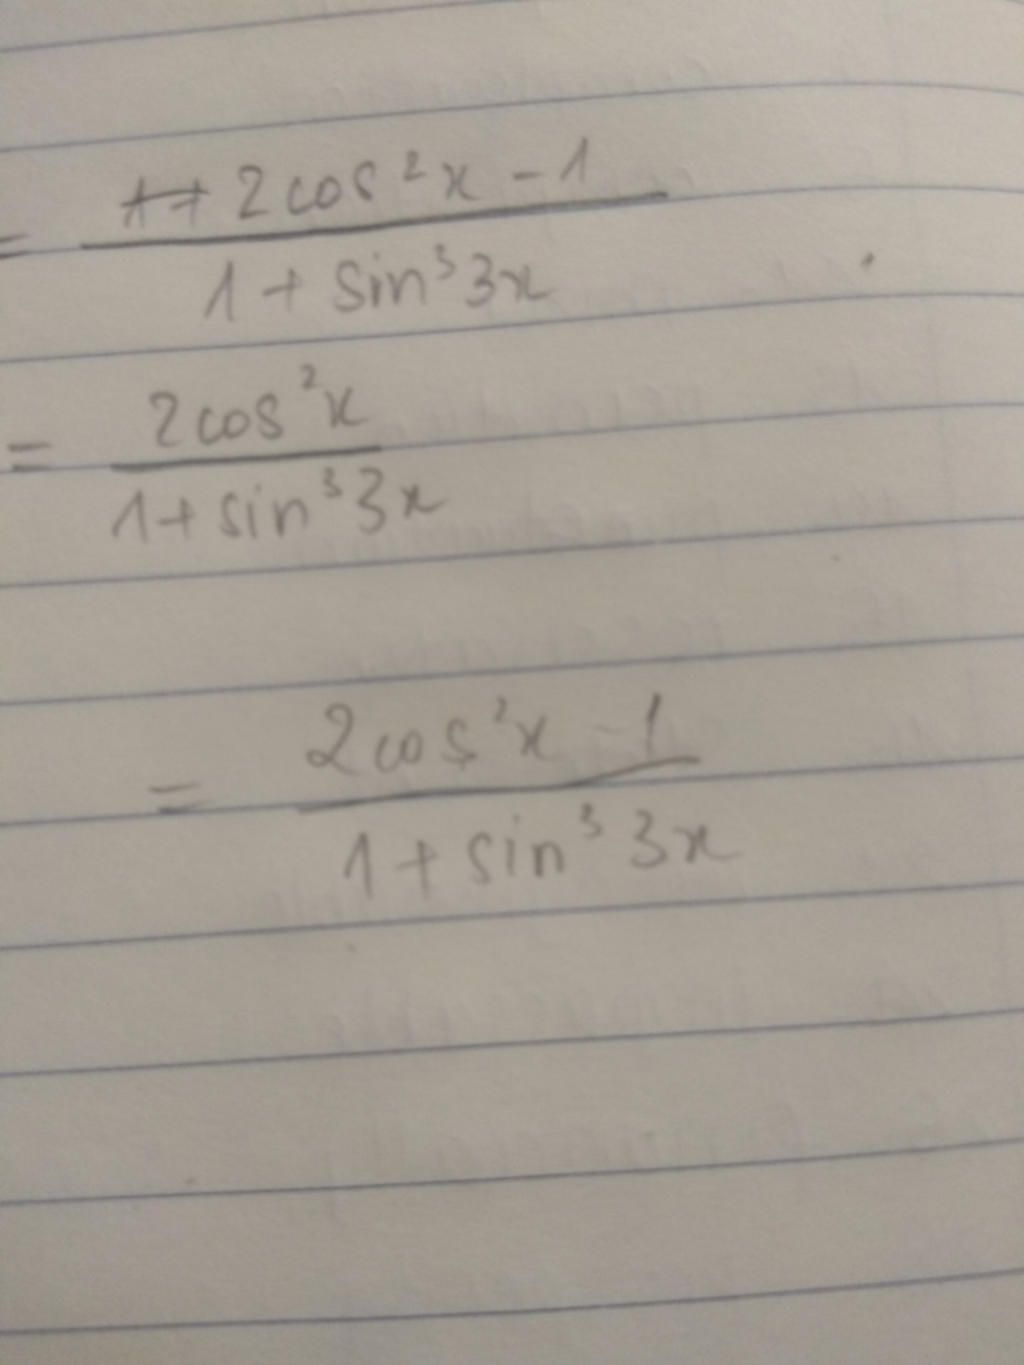 = 1+2cos²x-1 / 1+sin³3x
= 2cos²x / 1+sin³3x
= 2cos²x-1 / 1+sin³3x